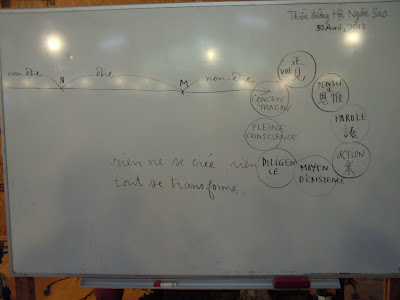 Thiền đường Hội Ngàn Sao
30 Avril, 2012
non être N être M non-être
正
VUE 見
PENSÉE
正
思惟
PAROLE
語
ACTION
業
MOYEN
D'EXISTENCE
DILIGEN
CE
PLEINE
CONSCIENCE
CONCEN
TRATION
rien ne se crée rien
tout se transforme.